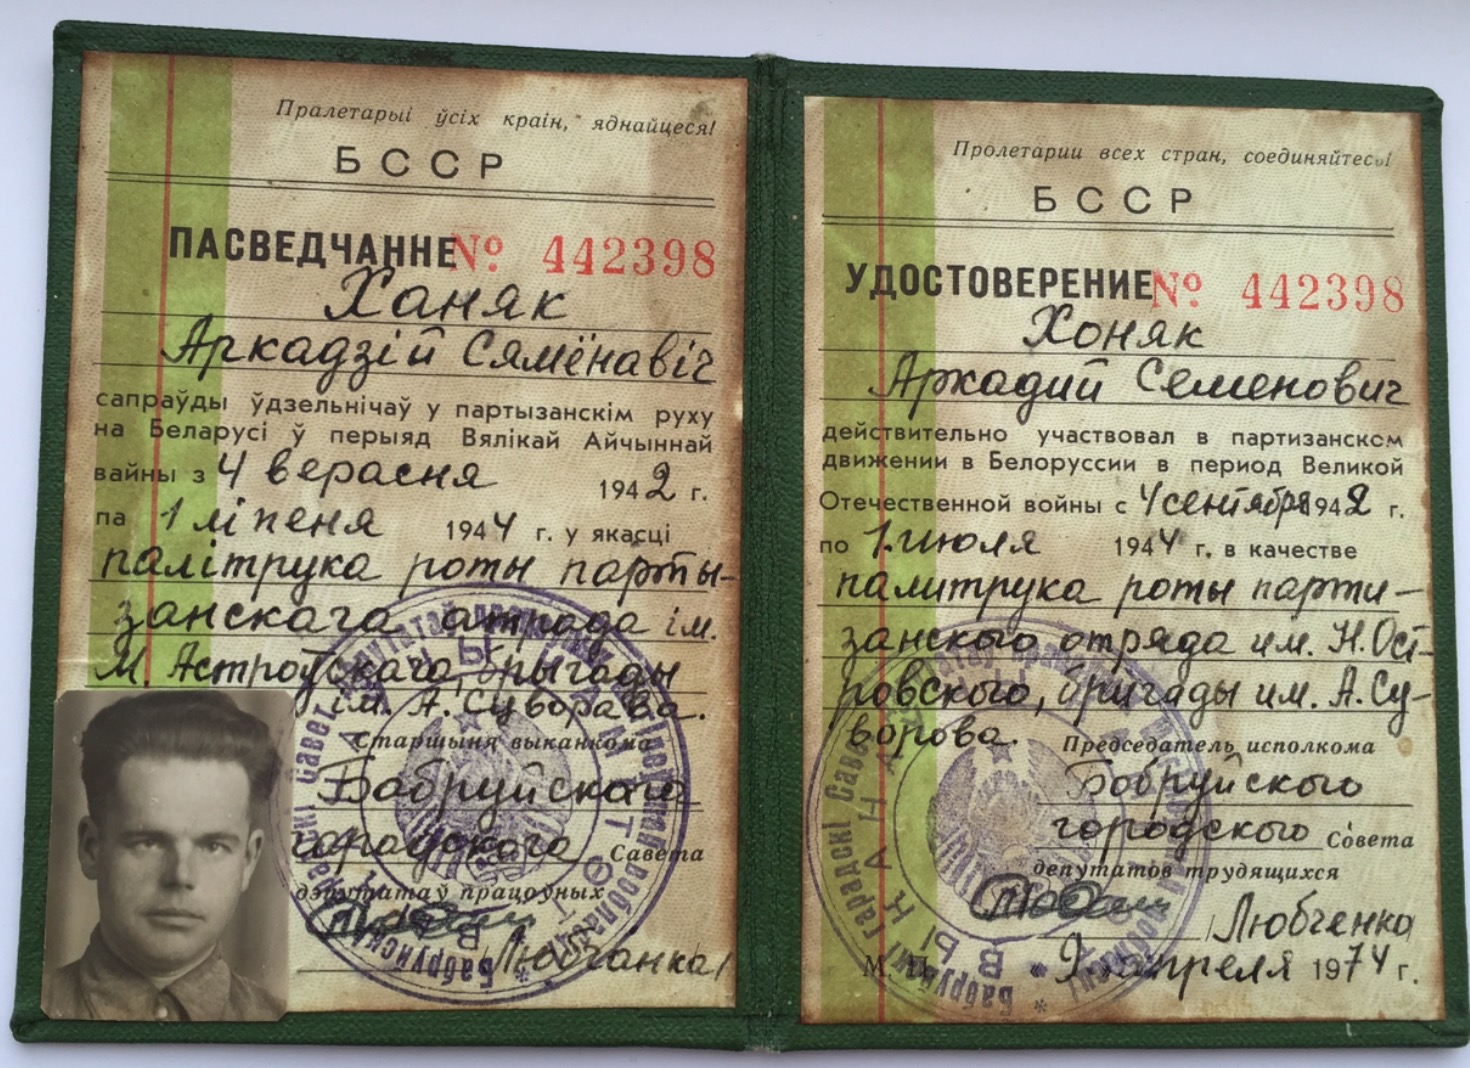 Пралетарыі ўсіх краін, яднайцеся!
БССР
ПАСВЕДЧАННЕ № 442398
Ханяк
Аркадзій Сямёнавіч
сапраўды ўдзельнічаў у партызанскім руху
на Беларусі ў перыяд Вялікай Айчыннай
вайны з 4 верасня 1942 г.
па 1 ліпеня 1944 г. у якасці
палітрука роты парты-
занскага атрада ім.
М. Астроўскага, брыгады
ім. А. Суворава.
Старшыня выканкома
Бабруйскага
гарадскога Савета
дэпутатаў працоўных
/Любчанка/
Пролетарии всех стран, соединяйтесь!
БССР
УДОСТОВЕРЕНИЕ № 442398
Хоняк
Аркадий Семенович
действительно участвовал в партизанском
движении в Белоруссии в период Великой
Отечественной войны с 4 сентября 1942 г.
по 1 июля 1944 г. в качестве
палитрука роты парти-
занского отряда им. Н. Ост-
ровского, бригады им. А. Су-
ворова.
Председатель исполкома
Бобруйского
городского Совета
депутатов трудящихся
/Любченко/
М. П. "9" апреля 1974 г.